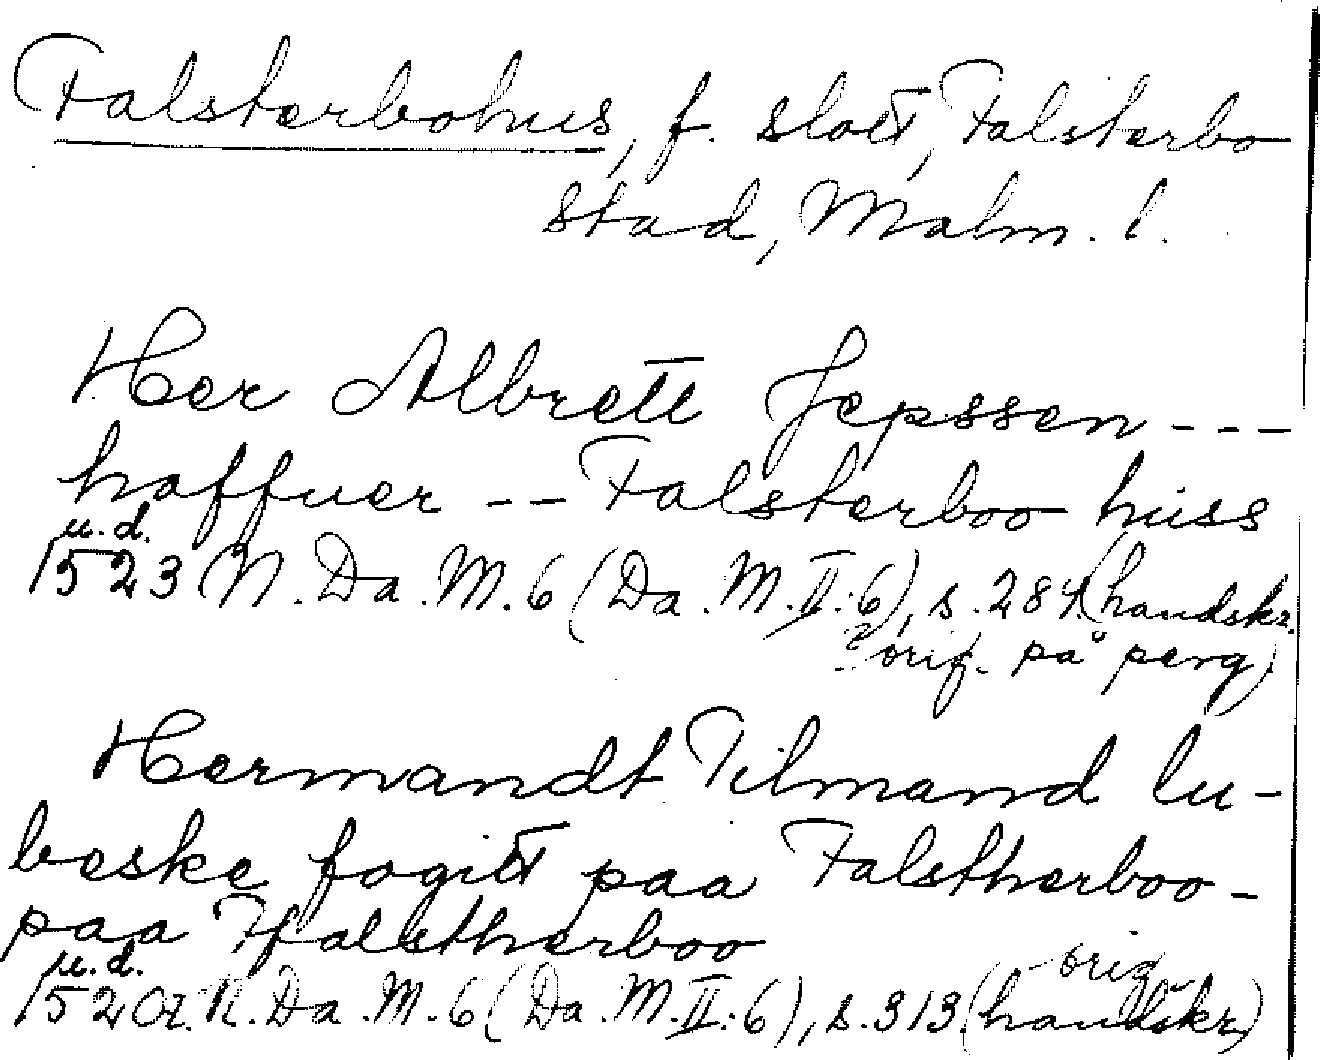 Falsterbohus, f. slott, Falsterbo
stad, Malm. l.
Her Albrett Jepssen ---
haffuer -- Falsterboo huss
u. d.
1523 (N. Da. M. 6 (Da. M. II: 6), s. 284 (handskr.
? orig. på perg)
Hermandt Tilmand lu-
beske fogitt paa Falstherboo -
paa Ffalstherboo
u. d. orig
1520 N. Da. M. 6 (Da. M. II: 6), s. 313 (handskr)